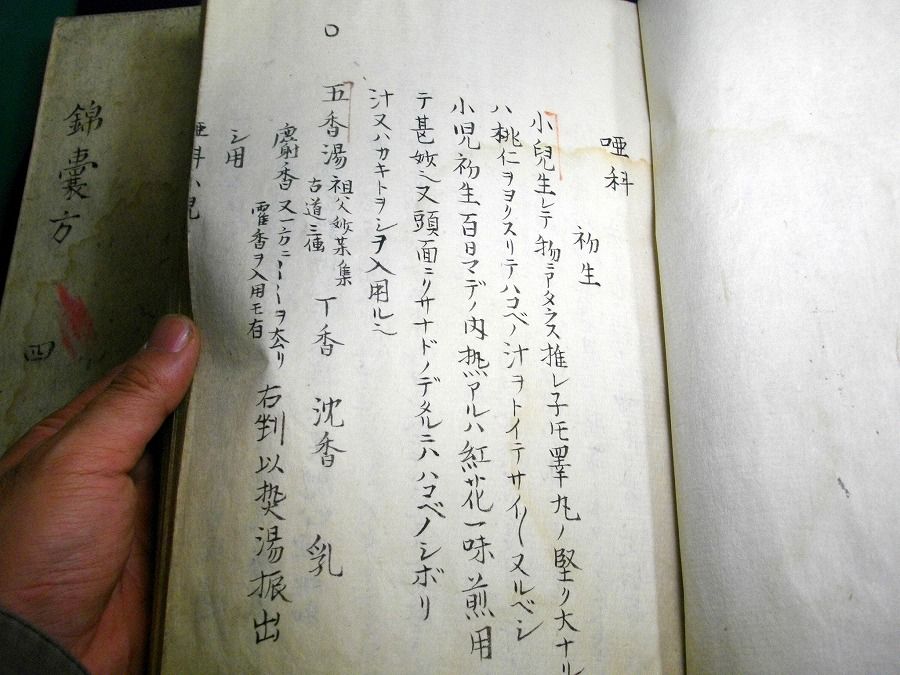 唖科
初生
小兒生レテ物ニアタラス推レ子モ睪丸ノ堅ク大ナル
ハ桃仁ヲヨクスリテハコベノ汁ヲトイテサイ〳〵ヌルベシ
小児初生百日マデノ内熱アルハ紅花一味煎用
テ甚妙ミ又頭面ニクサナドノデタルニハハコベノシボリ
汁又ハカキトヲシヲ入用ルミ
○五香湯 祖父妙薬集 古道三傳 丁香 沈香 乳
麝香 又一方ニ ヲ去リ 霍香ヲ入用モ有 右剉以焚湯振出
シ用
唖科小児
錦囊方
四